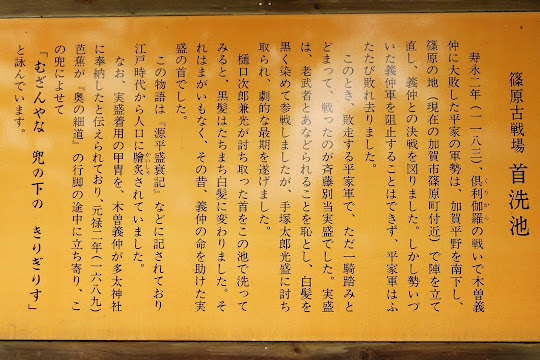 篠原古戦場 首洗池
寿永二年(一一八三)、倶利伽羅の戦いで木曽義
くりから
仲に大敗した平家の軍勢は、加賀平野を南下し、
篠原の地(現在の加賀市篠原町付近)で陣を立て
直し、義仲との決戦を図りました。しかし勢いづ
いた義仲軍を阻止することはできず、平家軍はふ
たたび敗れ去りました。
このとき、敗走する平家軍で、ただ一騎踏みと
どまって、戦ったのが斉藤別当実盛でした。実盛
は、老武者とあなどられることを恥とし、白髪を
黒く染めて参戦しましたが、手塚太郎光盛に討ち
取られ、劇的な最期を遂げました。
樋口次郎兼光が討ち取った首をこの池で洗って
みると、黒髪はたちまち白髪に変わりました。そ
れはまがいもなく、その昔、義仲の命を助けた実
盛の首でした。
この物語は『源平盛衰記』などに記されており
江戸時代から人口に膾炙されていました。
かいしゃ
なお、実盛着用の甲冑を、木曽義仲が多太神社
に奉納したと伝えられており、元禄二年(一六八九)
芭蕉が『奥の細道』の行脚の途中に立ち寄り、こ
の兜によせて
「むざんやな 兜の下の きりぎりす」
と詠んでいます。